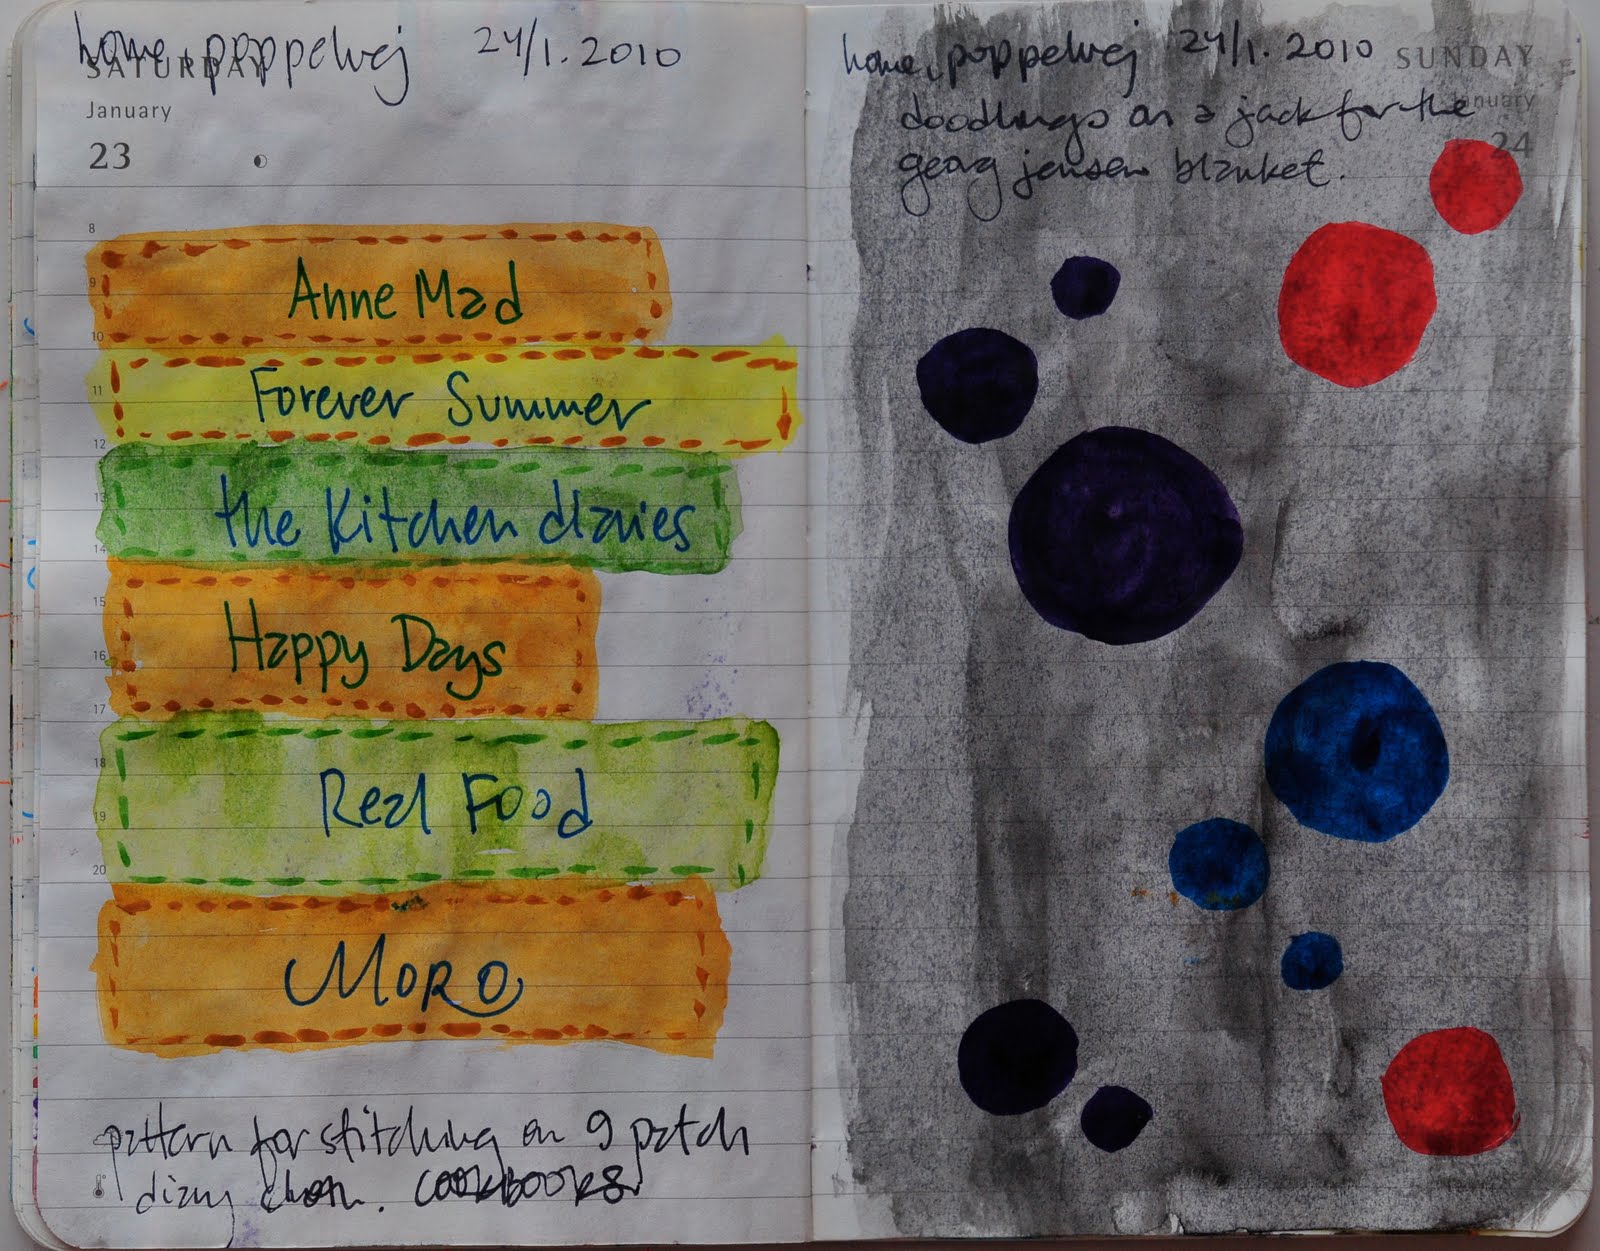 home, poppelvej 24/1.2010
SATURDAY
January
23
8
9
10
11
12
13
14
15
16
17
18
19
20
Anne Mad
Forever Summer
the Kitchen diaries
Happy Days
Real Food
MORO
pattern for stitching on 9 patch
diary cloth. COOKBOOKS
home, poppelvej 24/1.2010
SUNDAY
January
24
doodlings on a jack for the
georg jensen blanket.